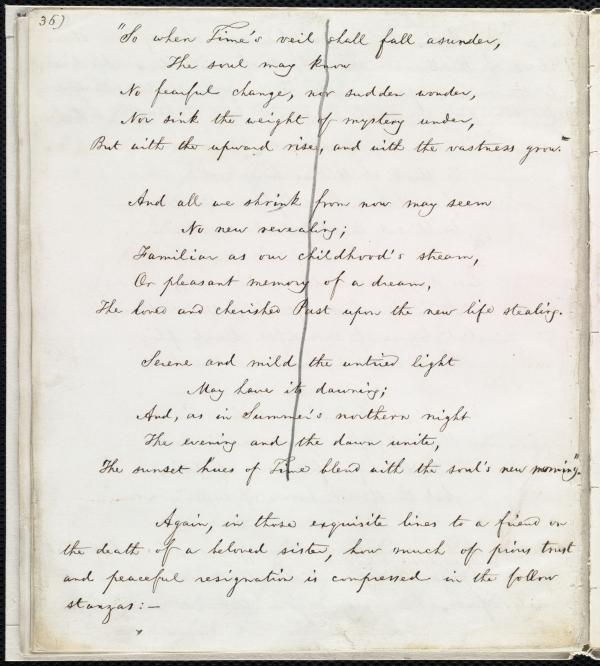 36)
"So when Time's veil shall fall asunder,
The soul may know
No fearful change, nor sudden wonder,
Nor sink the weight of mystery under,
But with the upward rise, and with the vastness grow.
And all we shrink from now may seem
No new revealing;
Familiar as our childhood's stream,
Or pleasant memory of a dream,
The loved and cherished Past upon the new life stealing.
Serene and mild the untried light
May have its dawning;
And, as in Summer's northern night
The evening and the dawn unite,
The sunset hues of Time blend with the soul's new morning".
Again, in those exquisite lines to a friend on
the death of a beloved sister, how much of pious trust
and peaceful resignation is compressed in the follow
stanzas:—